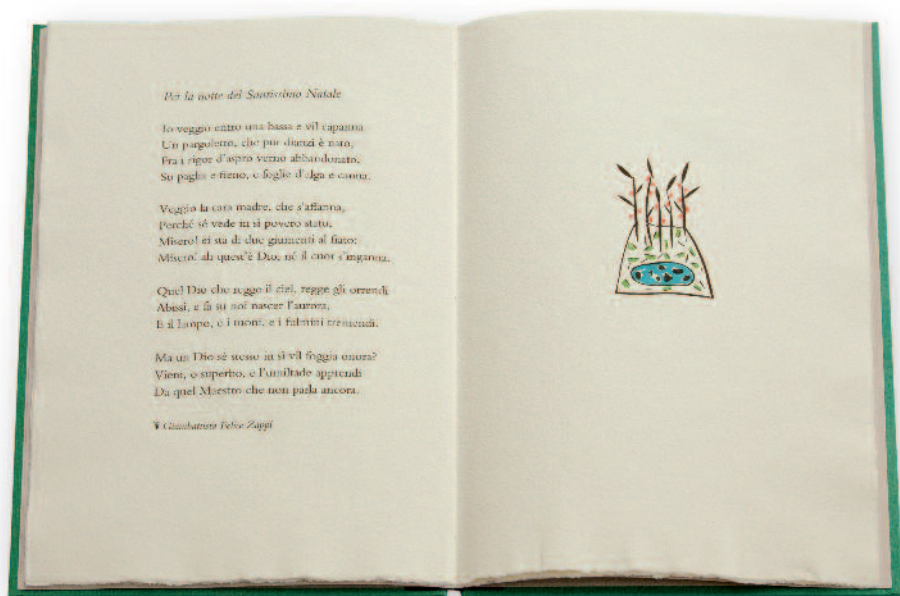 Per la notte del Santissimo Natale
Io veggio entro una bassa e vil capanna
Un pargoletto, che pur dianzi è nato,
Fra i rigor d'aspro verno abbandonato,
Su paglia e fieno, e foglie d'alga e canna.
Veggio la cara madre, che s'affanna,
Perché sé vede in sì povero stato.
Misero! ei sta di due giumenti al fiato:
Misero! ah quest'è Dio, né il cuor s'inganna.
Quel Dio che regge il ciel, regge gli orrendi
Abissi, e fa su noi nascer l'aurora,
E il lampo, e i tuoni, e i fulmini tremendi.
Ma un Dio sé stesso in sì vil foggia onora?
Vieni, o superbo, e l'umiltade apprendi
Da quel Maestro che non parla ancora.
Giambattista Felice Zappi